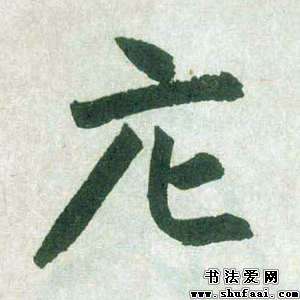 庀
书法爱网
www.shufaai.com